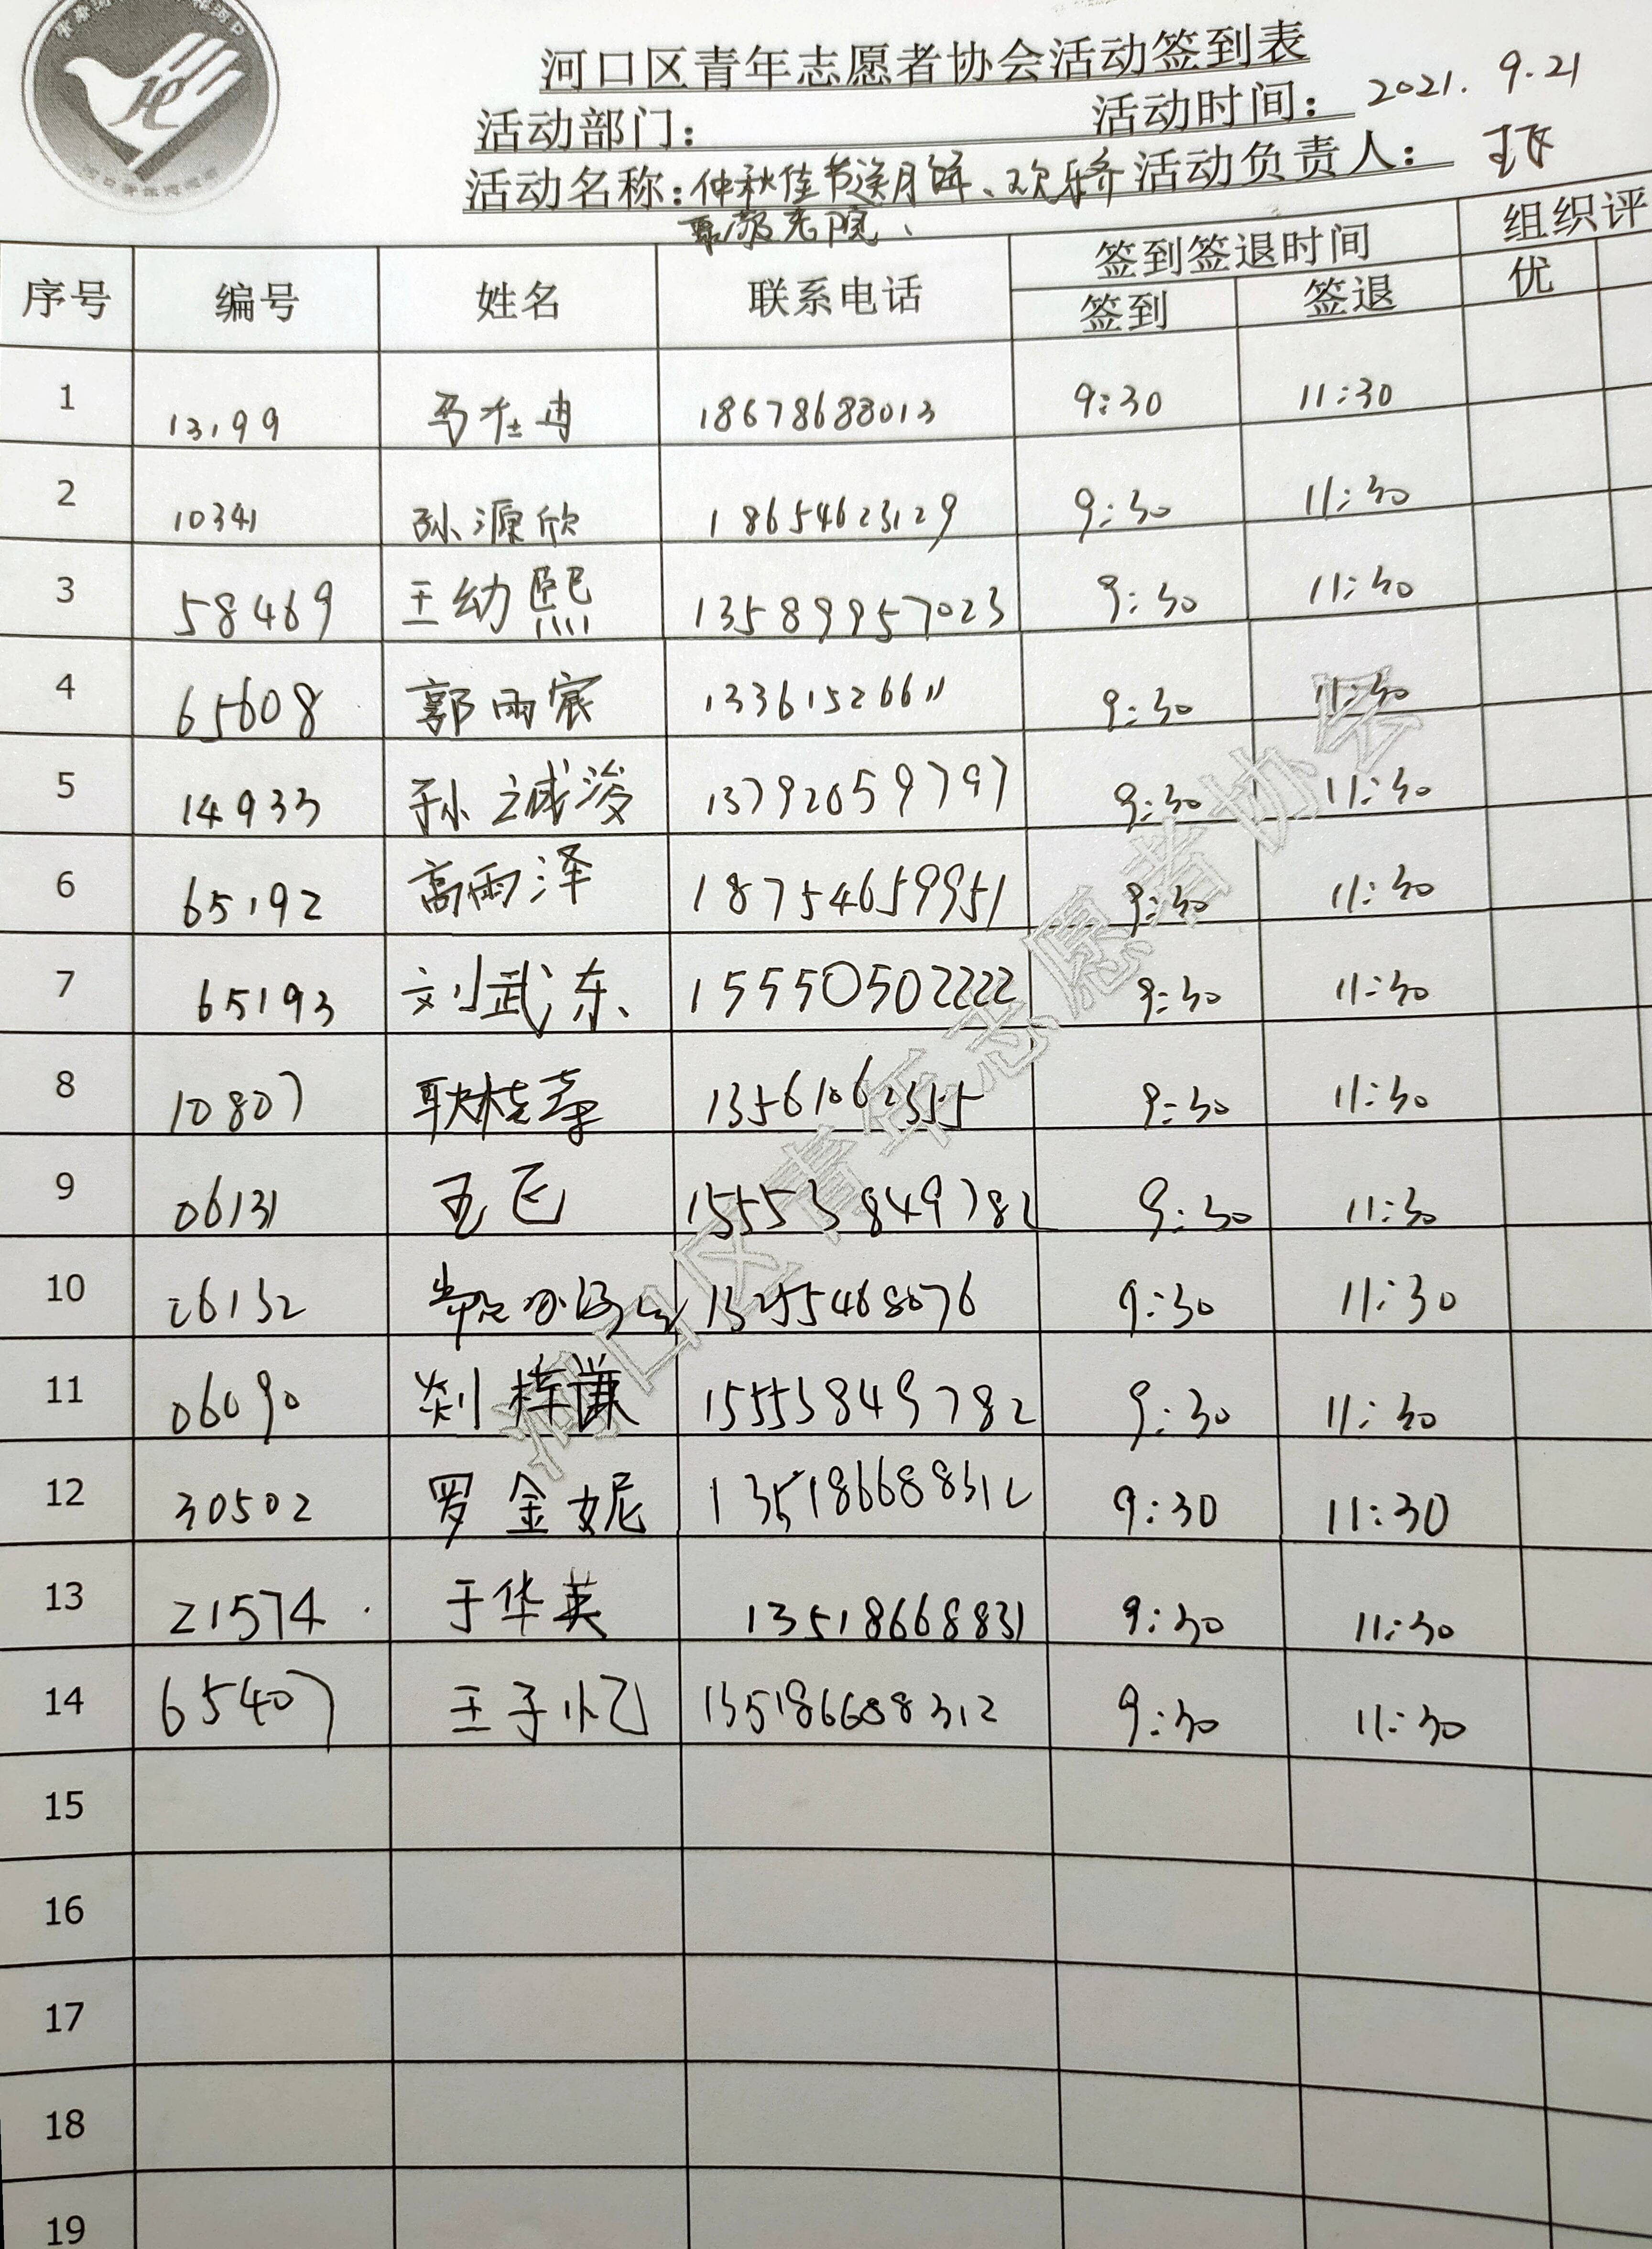 河口区青年志愿者协会活动签到表
活动部门： 活动时间： 2021. 9.21
活动名称：仲秋佳节送月饼、欢乐齐 活动负责人： 王飞
聚敬老院、
序号 编号 姓名 联系电话 签到签退时间 组织评
签到 签退 优
1 13199 18678688013 9:30 11:30
2 10341 孙源欣 18654623129 9:30 11:30
3 58469 王幼熙 13589957023 9:30 11:30
4 65608 郭雨宸 13361526611 9:30 11:30
5 14933 孙诚浚 13792059797 9:30 11:30
6 65192 高雨泽 18754659951 9:30 11:30
7 65193 刘武东 15550502222 9:30 11:30
8 10807 耿桂荣 13561062355 9:30 11:30
9 06131 王飞 15553849782 9:30 11:30
10 06132 13255468076 9:30 11:30
11 06090 刘梓谦 15553849782 9:30 11:30
12 30502 罗金妮 135186688312 9:30 11:30
13 21574 于华英 13518668831 9:30 11:30
14 65407 王子忆 135186688312 9:30 11:30
15
16
17
18
19
河口区青年志愿者协会